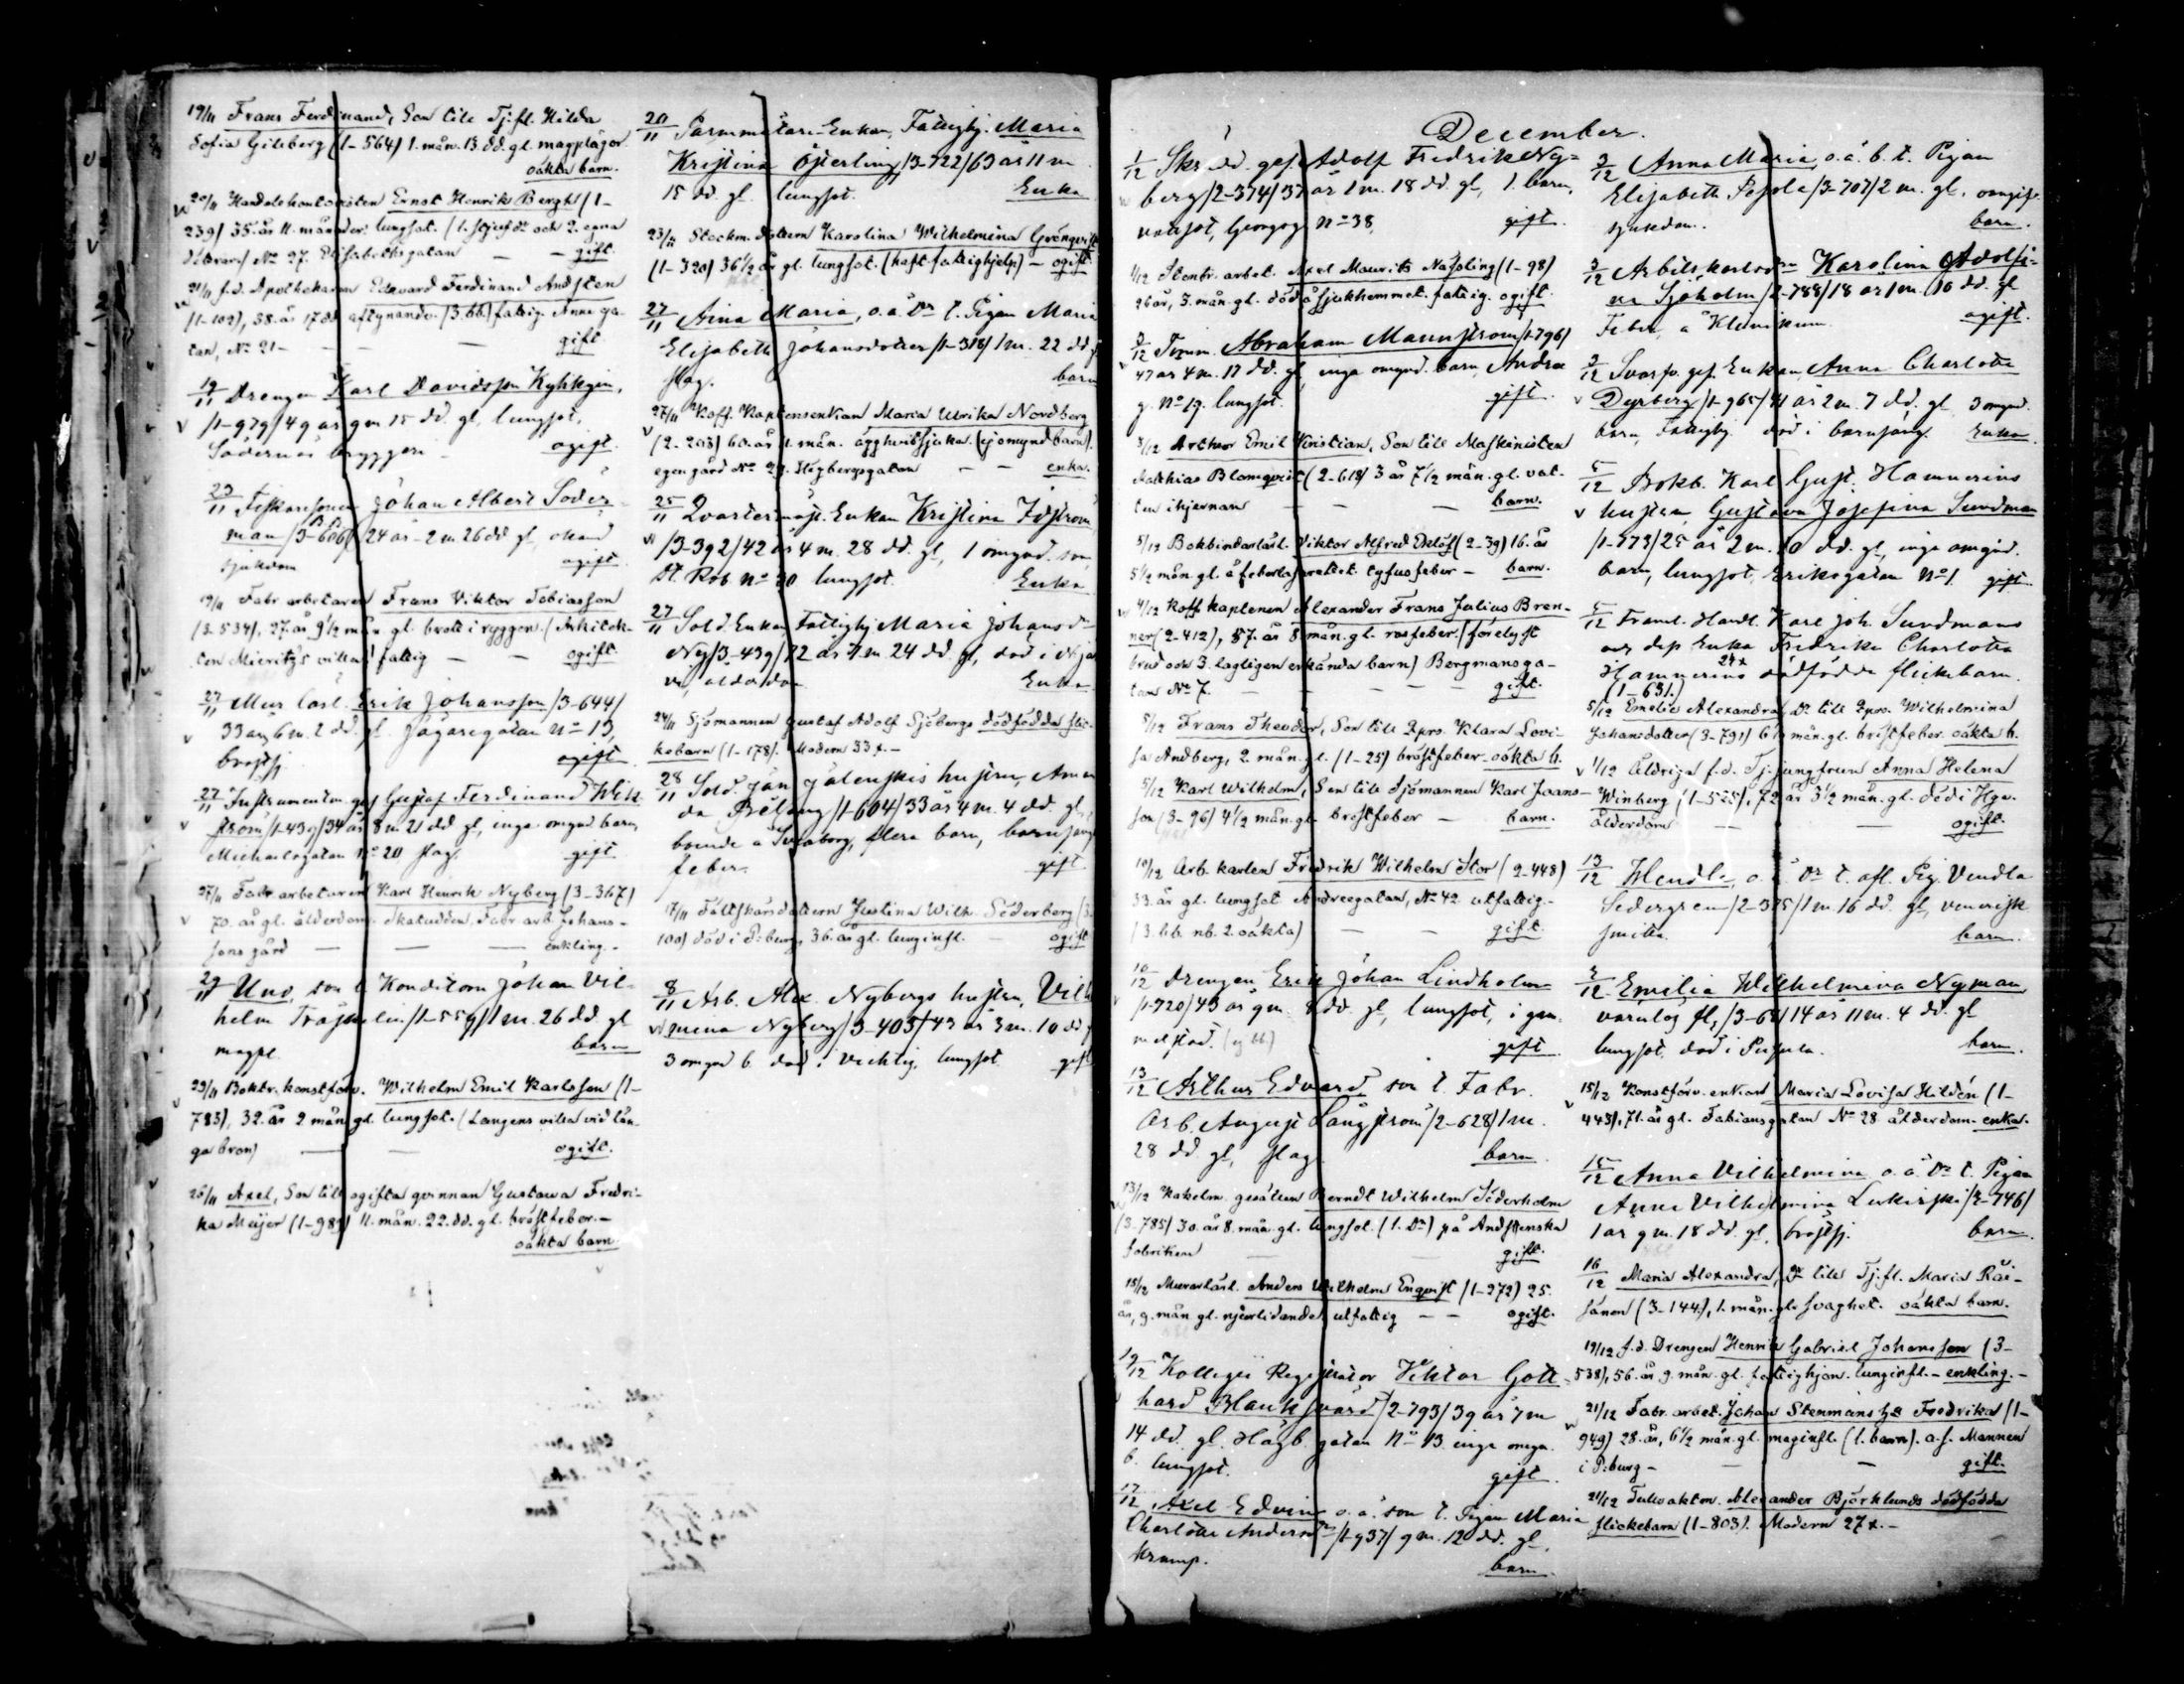 19/11 Frans Ferdinand, Son till Tj.fl. Hilda
Sofia Gileberg (1-564) 1. mån. 13. dd. gl. magplågor.
oäkta barn.
20/11 Handelskontoristen Ernst Henrik Bergh (1-
239) 35. år 11. månader. lungsot. (1. styfdr och 2. egna
döttrar) No 27. Elisabethsgatan — — gift.
21/11 f.d. Apothekaren Edvard Ferdinand Andsten
(1-102), 38. år 17 dd aftynande. (3. bb.) fattig. Anne ga-
tan, No 21 — — — gift.
19/11 Drengen Karl Davidsson Kykkyin,
/1-979/ 49 år 9 m 15 dd. gl, lungsot,
Södernäs bryggeri ogift.
23/11 Fiskaresonen Johan Albert Söder-
man /3-606/ 24 år 2 m. 26 dd gl, okänd
sjukdom ogift.
19/11 Fabr. arbetaren Frans Viktor Tobiasson
(3-534), 27. år 9 1/2 mån. gl. brott i ryggen. (Arkitek-
ten Mieritz's villa) fattig — — ogift.
27/11 Mur. lärl. Erik Johansson /3-644/
33 år 6 m. 2 dd. gl. Jägaregatan No 13,
bröstsj. ogift
27/11 Instrumentm. ges Gustaf Ferdinand Wik-
ström /1-439/ 34 år 8 m. 21 dd gl, inga omynd barn,
Michaelsgatan No 20 slag. gift.
27/11 Fabr. arbetaren Karl Henrik Nyberg (3-367)
70. år gl. ålderdom. Skatudden. Fabr. arb. Johans-
sons gård — — — enkling.
29/11 Uno, son t. Konditorn Johan Vil-
helm Träjmelin /1-559/ 1 m. 26 dd gl
magpl. barn
29/11 Boktr. konstförv. Wilhelm Emil Karlsson (1-
783), 32. år 2 mån. gl. lungsot. (Langens villa vid lån-
ga bron) — — ogift.
26/11 Axel, Son till ogifta qvinnan Gustawa Fredri-
ka Meijer (1-989) 11. mån. 22. dd. gl. bröstfeber.—
oäkta barn.
20/11 Parmmätare-Enkan, Fattighj. Maria
Kristina Österling /3-722/ 63 år 11 m
15 dd gl lungsot. Enka
23/11 Stockm. dottern Karolina Wilhelmina Grönqvist
(1-320) 36 1/2 år gl. lungsot. (haft fattighjelp) — ogift
27/11 Aina Maria, o.ä Dr t. Pigan Maria
Elisabeth Johansdotter /1-318/ 1 m. 22 dd
slag. barn
27/11 Koff. Kaptensenkan Maria Ulrika Nordberg
(2-203) 60. år 1. mån. ägghvitsjuka. (ej omynd barn).
egen gård No 29. Högbergsgatan — — enka.
25/11 Qvartermäst. Enkan Kristina Idström,
/3-392/ 42 år 4 m. 28 dd. gl, 1 omynd. son,
St. Rob. No 30 lungsot. Enka
27/11 Sold. Enkan, Fattighj Maria Johansdr
Ny /3-439/ 72 år 7 m 24 dd gl, död i Nja
vi, ålderdom Enka
24/11 Sjömannen Gustaf Adolf Sjöbergs dödfödda flic-
kebarn (1-178). Modern 33 x. —
28/11 Sold. Jan Jalenskis hustru, Aman
da Prelang /1-604/ 33 år 4 m. 4 dd. gl,
boende å Sveaborg, flera barn, barnsängs
feber. gift
17/11 Fältskärsdottern Justina Wilh. Söderberg (3-
100) död i P:burg, 36. år gl. lunginfl. — ogift
8/11 Arb. Alex. Nybergs hustru, Vilh
mina Nyberg /3-403/ 43 år 3 m. 10 dd
3 omynd b. död i Vichtis, lungsot gift
December.
1/12 Skr dd. ges. Adolf Fredrik Ny-
berg /2-374/ 37 år 1 m. 18 dd. gl, 1 barn,
vatusot, Georgsg No 38, gift.
1/12 Kontr. arbet. Axel Maurits Næsling (1-98)
26 år, 3. mån. gl. död å sjukhemmet. fattig. ogift.
3/12 Timm. Abraham Mannström /1-796/
47 år 4 m. 17 dd. gl, inga omynd. barn, Andrea
g. No 19. lungsot. gift.
3/12 Arthur Emil Kristian, Son till Maskinisten
Matthias Blomqvist (2-618) 3 år 7 1/2 mån. gl. vat-
ten i hjernan — — barn.
5/12 Bokbindarlärl. Viktor Alfred Eklöf (2-39) 16. år
5 1/2 mån. gl. å feberlasarettet. tyfusfeber — barn.
4/12 Koff. kaptenen Alexander Frans Julius Bren-
ner (2-412), 57. år 8 mån. gl. rosfeber. (förelyst
brud och 3. lagligen erkända barn) Bergmansga-
tan No 7. — — — gift.
5/12 Frans Theodor, Son till Qprs. Klara Lovi-
sa Andberg, 2. mån. gl. (1-25) bröstfeber — oäkta b.
5/12 Karl Wilhelm, Son till Sjömannen Karl Jvans-
son (3-96) 4 1/2 mån. gl. bröstfeber — barn.
10/12 Arb. karlen Fredrik Wilhelm Stor (2-448)
33. år gl. lungsot Andreegatan, No 42 utfattig.-
(3. bb. nb. 2. oäkta) — — gift.
10/12 Drengen Erik Johan Lindholm
/1-720/ 43 år 9 m. 8 dd. gl, lungsot, i gam-
melstad. (ej bb.) gift.
13/12 Arthur Edvard son t. Fabr.
Arb. August Långström /2-628/ 1 m.
28 dd. gl, slag. barn.
13/12 Kakelm. gesällen Berndt Wilhelm Söderholm
(3-785) 30. år 8. mån. gl. lungsot. (1. Dr) på Andstenska
fabriken — gift.
15/12 Murarlärl. Anders Wilhelm Enqvist (1-272) 25.
år, 9. mån gl. njurlidande, utfattig — — ogift.
19/12 Kollegii Registrator Viktor Gott
hard Blankswärd /2-793/ 39 år 7 m
14 dd. gl. Högb. gatan No 13. inga omyn.
b. lungsot. gift.
17/12 Axel Edvin o.ä. son t. Pigan Maria
Charlotta Andersdr /1-937/ 9 m. 12 dd. gl,
kramp. barn.
3/12 Anna Maria o.ä. b. t. Pigan
Elisabeth Pesola /3-707/ 2 m. gl. omgif.
sjukdom. barn.
3/12 Arbetskarlsdn Karolina Adolfi-
na Sjöholm /2-788/ 18 år 1 m. 10 dd. gl
Feber, å Klinikum. ogift.
3/12 Svarfv. ges Enkan Anna Charlotta
Dyrberg /1-965/ 41 år 2 m. 7 dd. gl 3 omynd.
barn, Fattighj. död i barnsäng. Enka.
5/12 Bokb. Karl Gust. Hamnerius
hustru, Gustava Josefina Sundman
/1-173/ 25 år 2 m. 10 dd. gl, inga omynd.
barn, lungsot, Eriksgatan No 1. gift.
5/12 Framl. Handl. Karl Joh. Sundmans
och dess Enka Fredrika Charlotta
Hamnerius 24 x dödfödda flickebarn.
(1-631.)
5/12 Emelie Alexandra, Dr till Qprs. Wilhelmina
Johansdotter (3-791) 6 1/2 mån. gl. bröstfeber. oäkta b.
1/12 Åldriga f.d. Tj. jungfrun Anna Helena
Winberg (1-525), 72 år 3 1/2 mån. gl. död i Hga.
ålderdom — — ogift.
13/12 Hendla, o.ä. Dr t. afl. Pig. Vendla
Sedergren /2-375/ 1 m. 16 dd. gl, venerisk
smitta. barn.
2/12 Emilia Wilhelmina Nyman
värnlös fl, 14 år 11 m. 4 dd. gl
lungsot, död i Pusula. barn.
15/12 Konstförv. enkan Maria Lovisa Hildén (1-
445), 71. år gl. Fabiansgatan No 28 ålderdom. enka.
15/12 Anna Vilhelmina o.ä Dr t. Pigan
Anna Vilhelmina Lukinski /2-746/
1 år 9 m. 18 dd. gl, bröstsj. barn.
16/12 Maria Alexandra, Dr till Tj.fl. Maria Räi-
sänen (3-144), 1. mån. gl. svaghet. oäkta barn.
19/12 f.d. Drengen Henrik Gabriel Johansson (3-
538), 56. år 9. mån. gl. fattighjon. lunginfl. — enkling. —
21/12 Fabr. arbet. Johan Stenmans hs Fredrika (1-
949) 28. år, 6 1/2 mån. gl. maginfl. (1. barn). a.s. Mannen
i P:burg — — gift.
21/12 Tullvaktm. Alexander Björklunds dödfödda
flickebarn (1-803). Modern 27 x. —